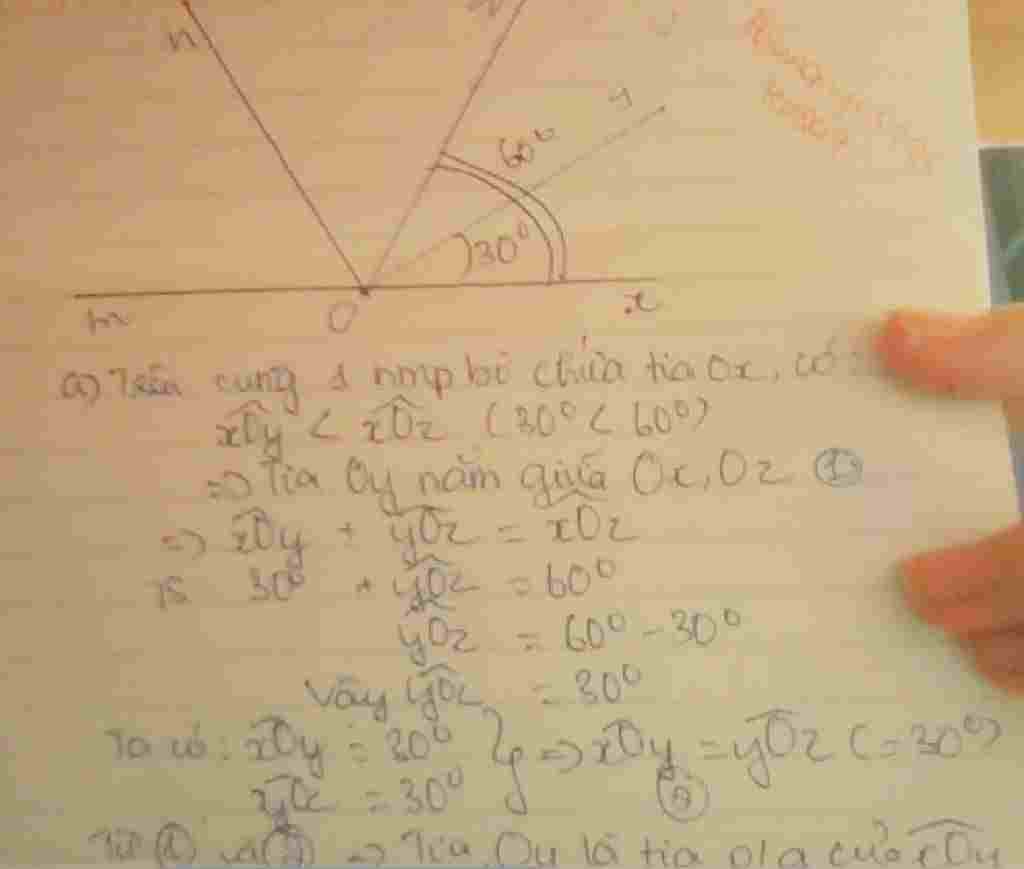 n
y
60°
30°
m
O
x
a) Trên cùng 1 nmp bờ chứa tia Ox, có:
xOy < xOz (30° < 60°)
=> Tia Oy nằm giữa Ox, Oz ①
=> xOy + yOz = xOz
30° + yOz = 60°
yOz = 60° - 30°
Vậy yOz = 30°
Ta có: xOy = 30° } => xOy = yOz (= 30°)
yOz = 30° ②
Từ ① và ② => Tia Oy là tia p/g của xOy